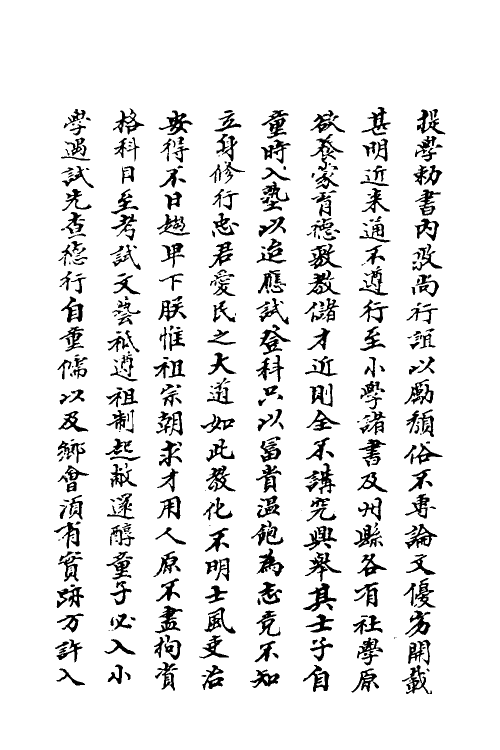 提學勅書內敦尚行誼以勵頹俗不專論文優劣開載
甚明近来通不遵行至小學諸書及州縣各有社學原
欲養蒙育德敷教儲才近則全不講究興舉其士子自
童時入塾以迨應試登科只以冨貴温飽為志竟不知
立身修行忠君愛民之大道如此教化不明士風吏治
安得不日趨卑下朕惟祖宗朝求才用人原不盡拘資
格科目至考試文藝祗遵祖制起敝還醇童子必入小
學遇試先查德行自童儒以及鄉會湏有實跡方許入